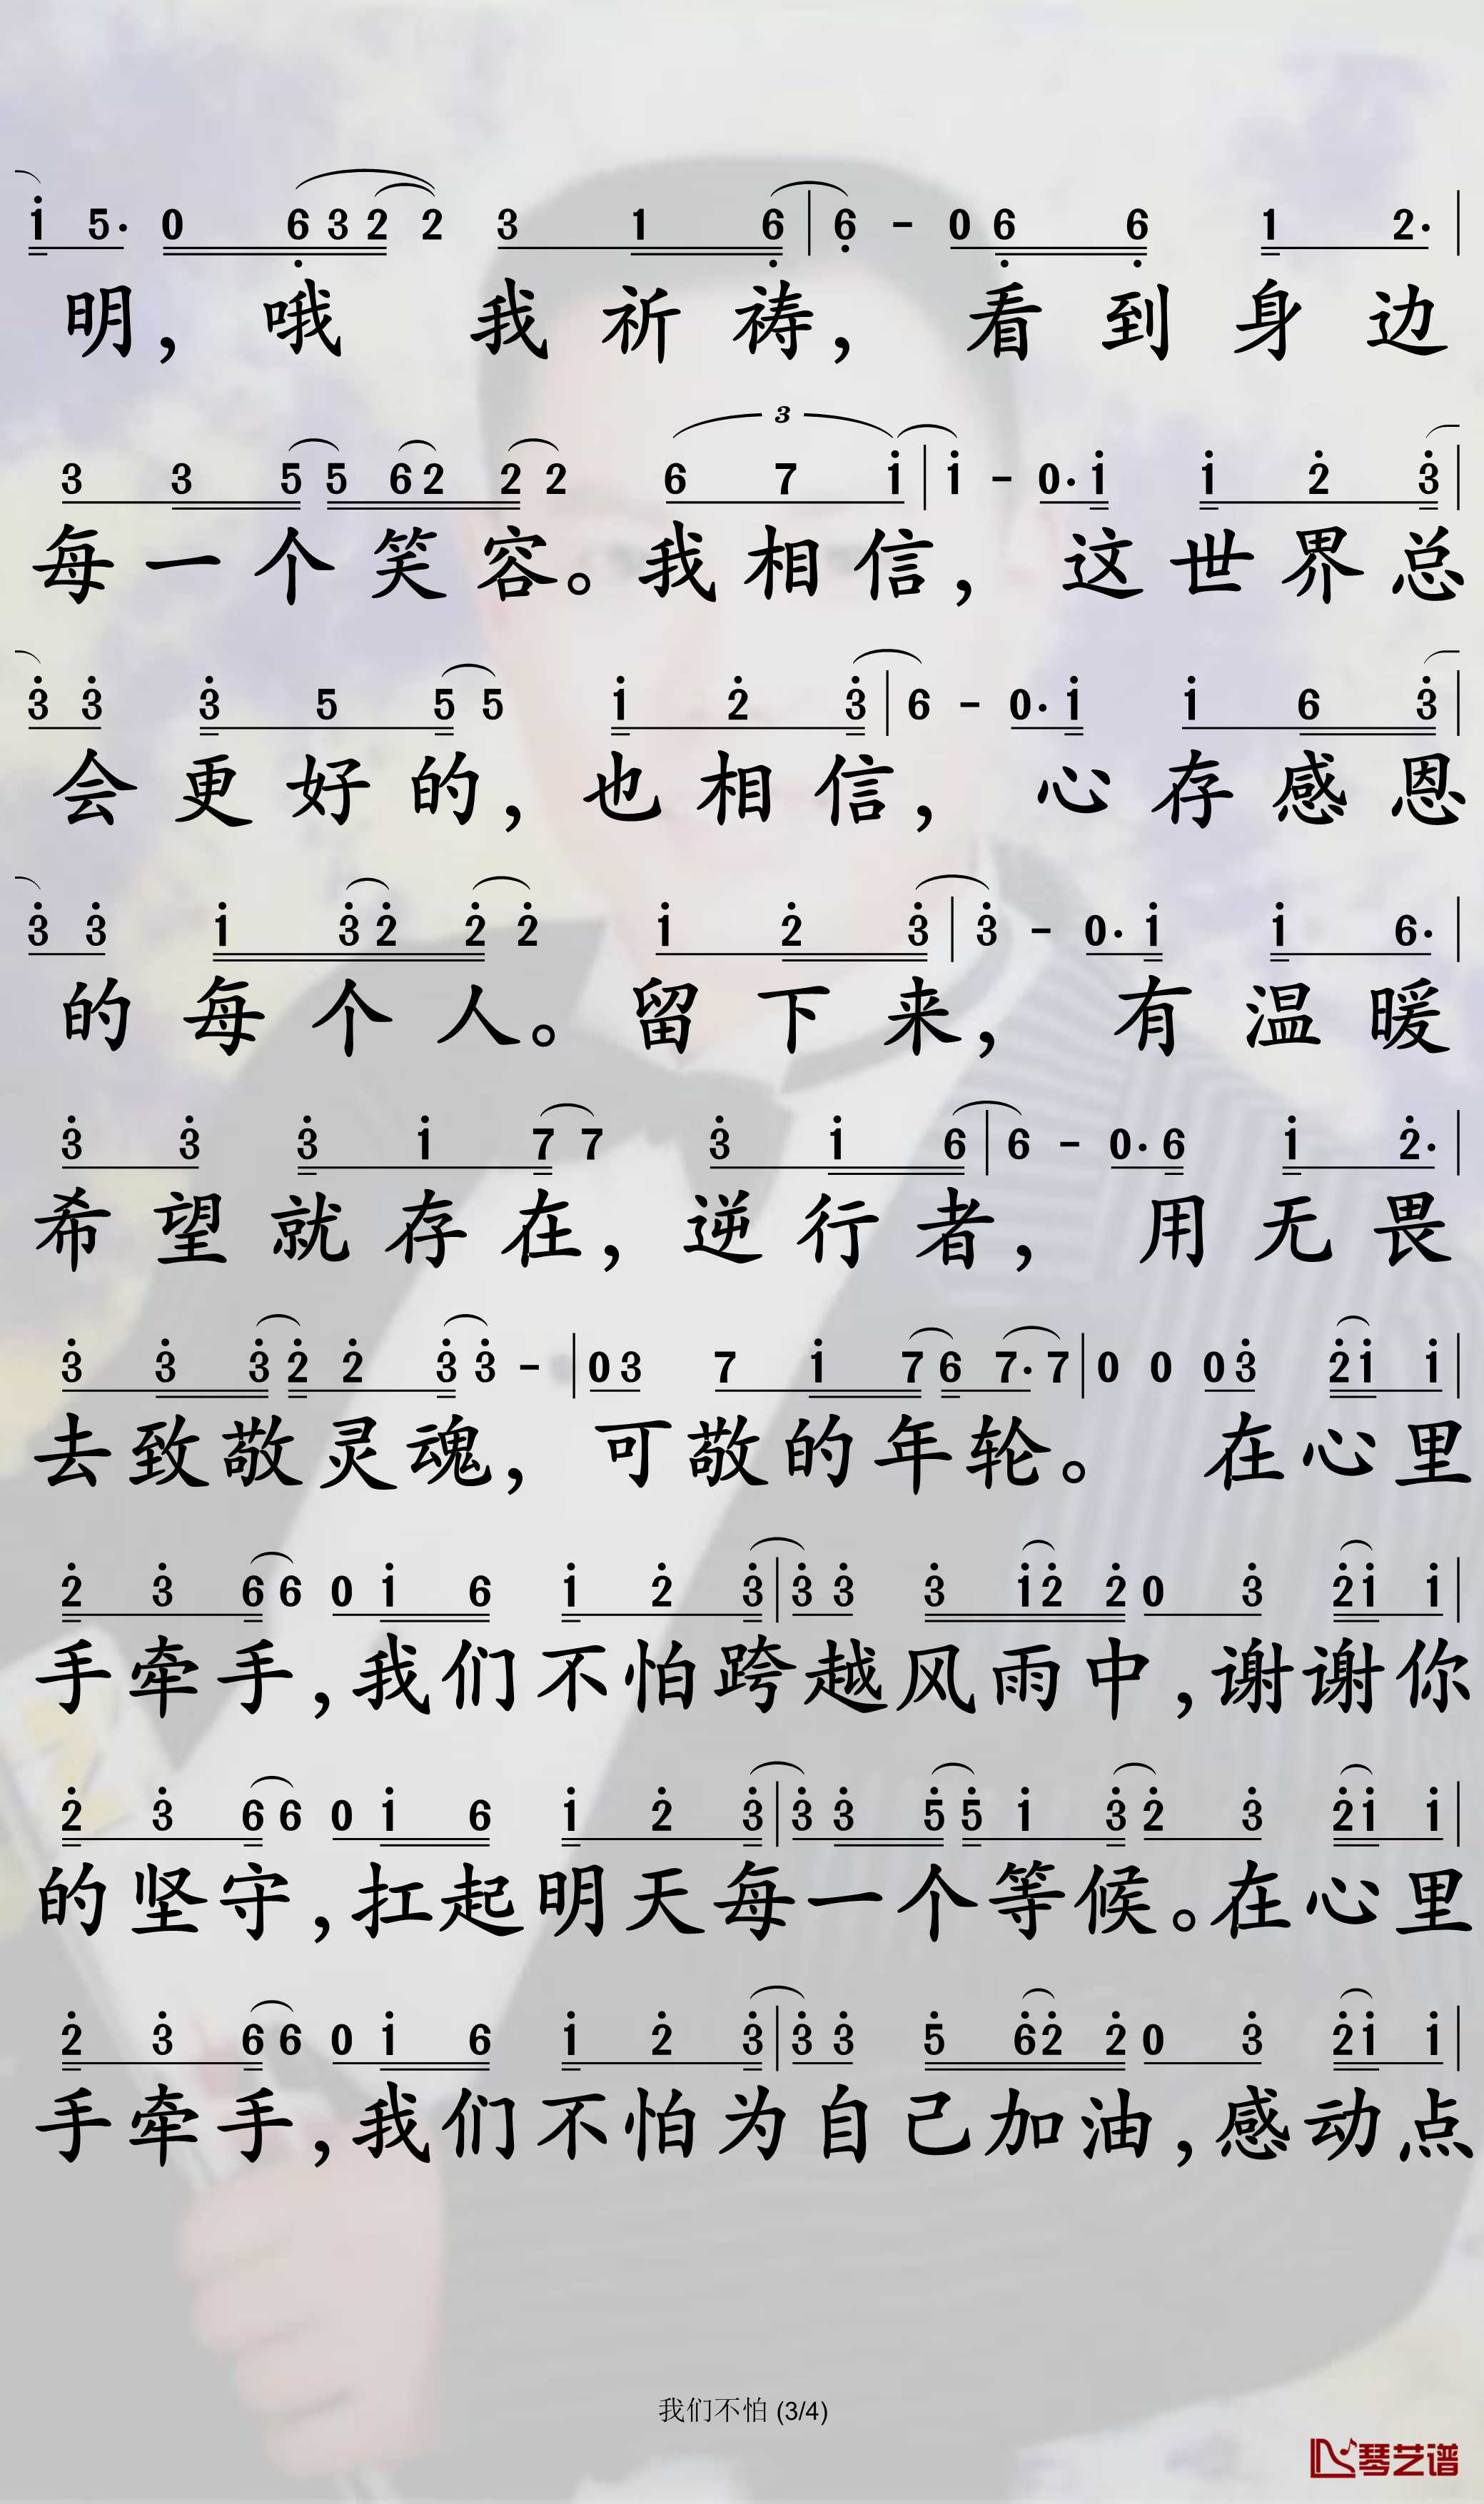 i 5. 0 6 3 2 2 3 1 6 | 6 - 0 6 6 1 2. |
明，哦 我祈祷，看到身边
3
3 3 5 5 6 2 2 2 6 7 i | i - 0. i i 2 3 |
每一个笑容。我相信，这世界总
3 3 3 5 5 5 i 2 3 | 6 - 0. i i 6 3 |
会更好的，也相信，心存感恩
3 3 i 3 2 2 2 i 2 3 | 3 - 0. i i 6. |
的每个人。留下来，有温暖
3 3 3 i 7 7 3 i 6 | 6 - 0. 6 i 2. |
希望就存在，逆行者，用无畏
3 3 3 2 2 3 3 - | 0 3 7 i 7 6 7. 7 | 0 0 0 3 2 i i |
去致敬灵魂，可敬的年轮。 在心里
2 3 6 6 0 i 6 i 2 3 | 3 3 3 i 2 2 0 3 2 i i |
手牵手，我们不怕跨越风雨中，谢谢你
2 3 6 6 0 i 6 i 2 3 | 3 3 5 5 i 3 2 3 2 i i |
的坚守，扛起明天每一个等候。在心里
2 3 6 6 0 i 6 i 2 3 | 3 3 5 6 2 2 0 3 2 i i |
手牵手，我们不怕为自己加油，感动点
我们不怕 (3/4)
琴艺谱